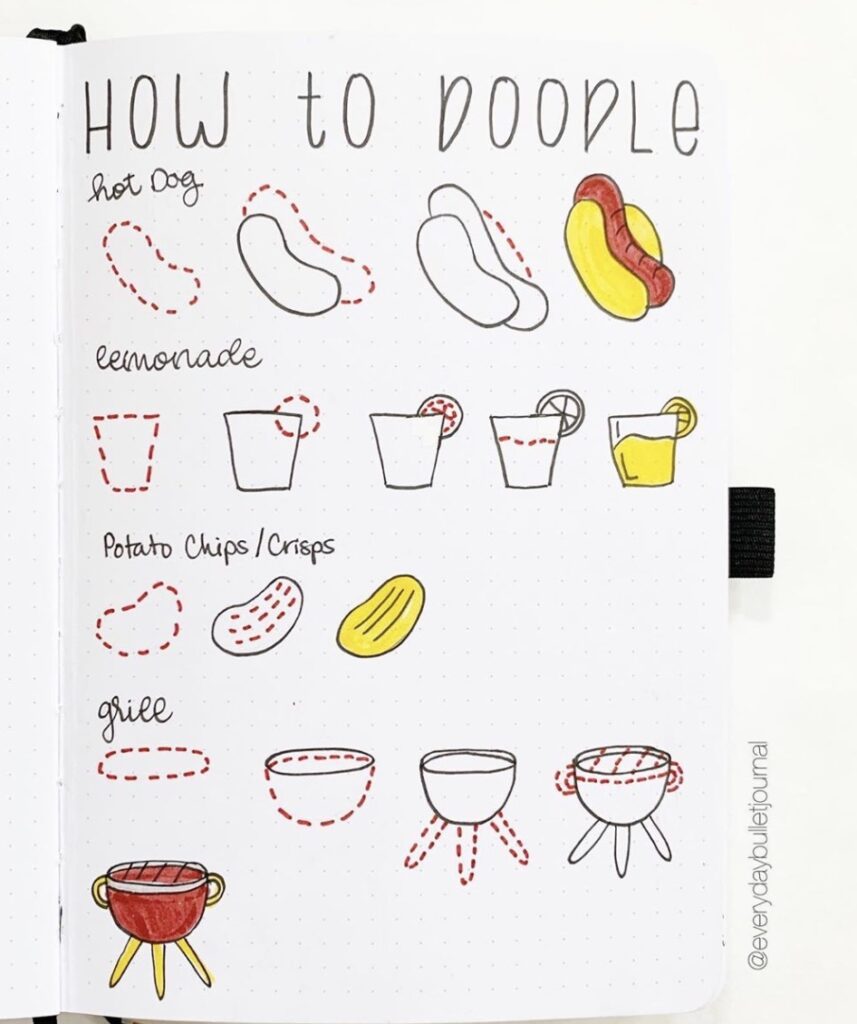 HOW to DOODLE
hot Dog
lemonade
Potato Chips/Crisps
grill
@everydaybulletjournal